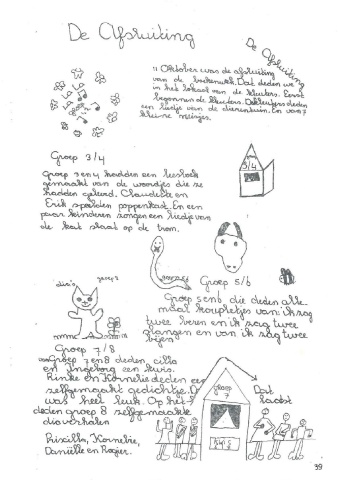 De Afsluiting
De Afsluiting
11 Oktober was de afsluiting
van de boekenweek. Dat deden we
in het lokaal van de kleuters. Eerst
begonnen de kleuters. De kleutjes deden
een liedje van de dierentuin. En van 7
kleine
La La
La La
Groep 3/4
3/4
Groep 3 en 4 hadden een leesboek
gemaakt van de woordjes die ze
hadden geleerd. Claudia en
Erik speelden poppenkast. En een
paar kinderen zongen een liedje van
de kat slaat op de trom.
dia's
groep 5
Groep 5/6
Groep 5 en 6 die deden alle
maal van ik zag
twee beren en ik zag twee
slangen en van ik zag twee
bijen
Groep 7/8
Groep 7 en 8 deden, cilla
en Ingeborg een kwis.
Rinke en Kornelie deden een
zelfgemaakt gedichtje. Dat
was heel leuk. Op het laatst
deden groep 8 zelfgemaakte
diaverhalen
groep
7
Priscilla, Kornelie,
Daniëlle en Rogier.
39